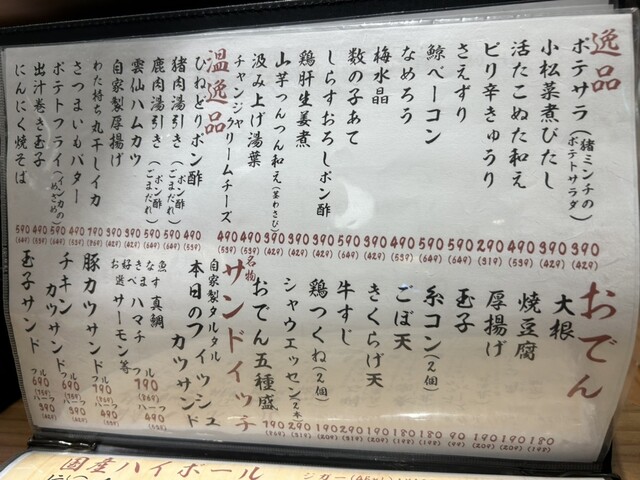 逸品
ポテサラ(猪ミンチのポテトサラダ) 390 (429)
小松菜煮びたし 390 (429)
活たこぬた和え 490 (539)
ピリ辛きゅうり 290 (319)
さえずり 590 (649)
鯨ベーコン 590 (649)
なめろう 490 (539)
梅水晶 490 (539)
数の子あて 590 (649)
しらすおろしポン酢 390 (429)
鶏肝生姜煮 390 (429)
山芋つんつん和え(茎わさび) 390 (429)
汲み上げ湯葉 490 (539)
チャンジャクリームチーズ 490 (539)
温逸品
ひねどりポン酢 490 (539)
猪肉湯引き(ポン酢 ごまだれ) 590 (649)
鹿肉湯引き(ポン酢 ごまだれ) 590 (649)
雲仙ハムカツ 490 (539)
自家製厚揚げ 390 (429)
わた持ち丸干しイカ 790 (869)
さつまいもバター 490 (539)
ポテトフライ(インカのめざめ) 590 (649)
出汁巻き玉子 490 (539)
にんにく焼そば 590 (649)
おでん
大根 180 (198)
焼豆腐 190 (209)
厚揚げ 190 (209)
玉子 90
糸コン(2個) 180 (198)
ごぼ天 180 (198)
きくらげ天 190 (209)
牛すじ 290 (319)
鶏つくね(2個) 190 (209)
シャウエッセン2本 290 (319)
おでん五種盛 790 (869)
名物
サンドイッチ
自家製タルタル
本日のフィッシュカツサンド
魚す 真鯛
なま ハマチ
きべ サーモン等
フル 790 (869)
ハーフ 490 (539)
豚カツサンド フル 790 ハーフ 490
チキンカツサンド フル 690 (759) ハーフ 390 (429)
玉子サンド フル 690 (759) ハーフ 390 (429)
国産ハイボール